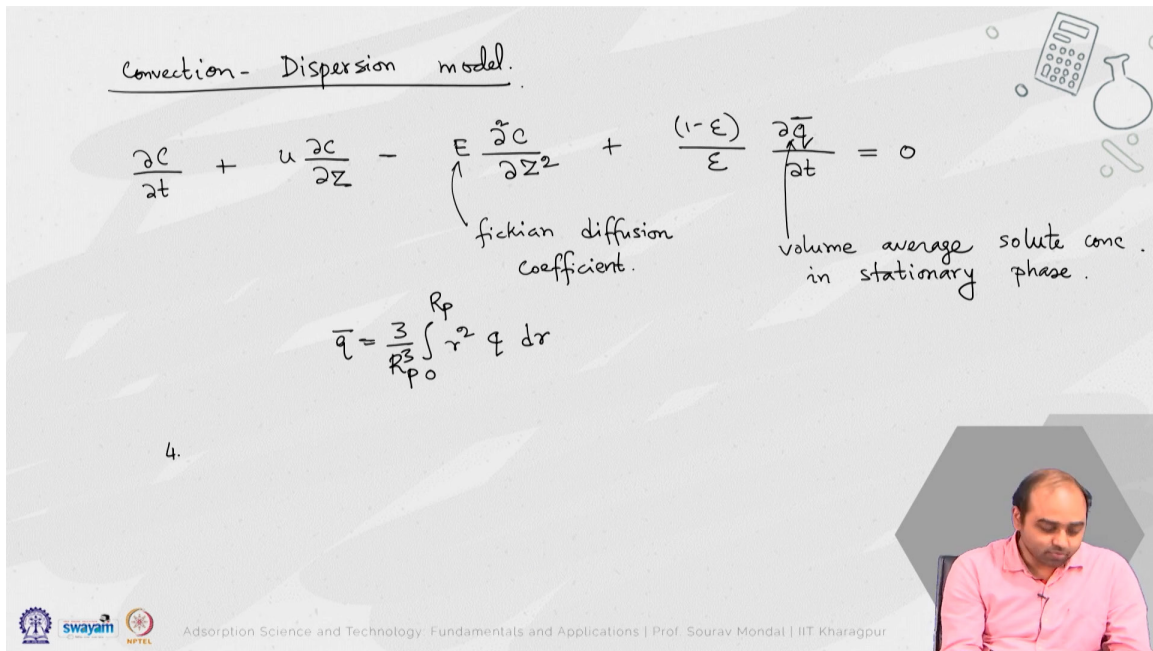 Convection - Dispersion model.
∂C/∂t + u ∂C/∂Z - E ∂²C/∂Z² + (1-ε)/ε ∂q̄/∂t = 0
fickian diffusion coefficient.
volume average solute conc. in stationary phase.
q̄ = 3/R³p ∫₀^Rp r² q dr
4.
swayam
NPTEL
Adsorption Science and Technology: Fundamentals and Applications | Prof. Sourav Mondal | IIT Kharagpur